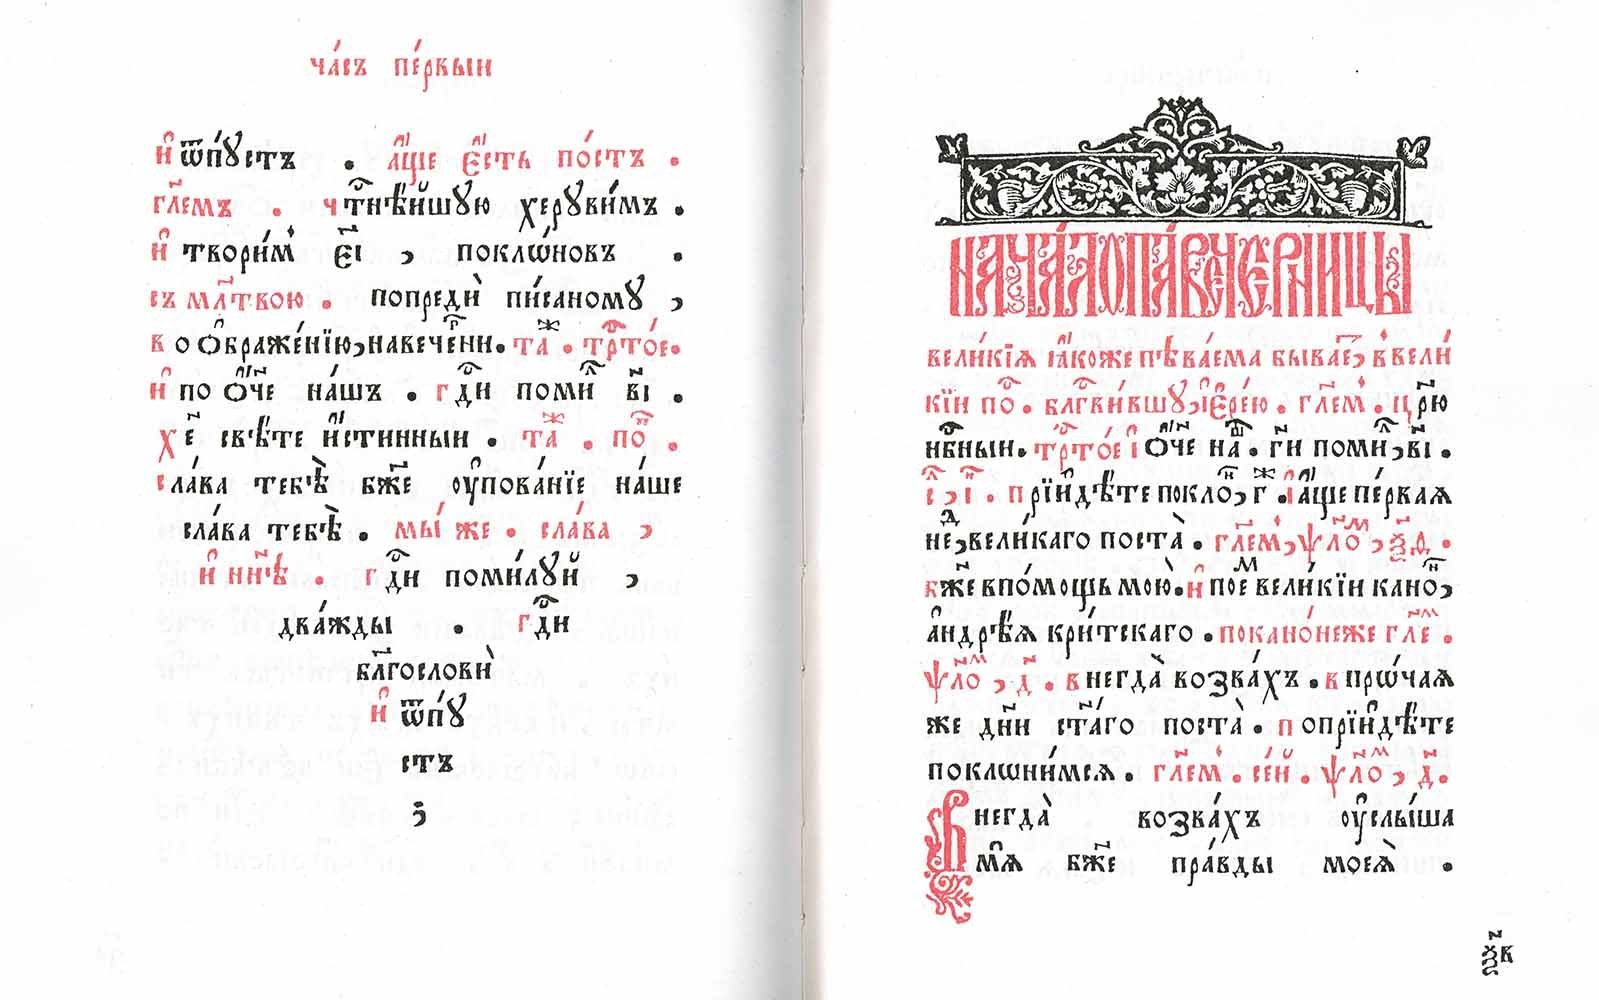 ча́съ пе́рвыи
и҆ ѿпꙋ́стъ . а҆́ще є҆́сть по́стъ .
гл҃емъ . чⷭ҇тнѣ́йшꙋю херꙋви́мъ .
и҆ твори́мъ є҃і , покло́новъ .
съ мл҃твою . попредѝ пи́саномꙋ ,
воѡбраже́нїю, навече́рни . таⷤ . трⷭ҇тое .
и҆ по ѻ҆́ч҃е на́шъ . гдⷭ҇и поми́л в҃і .
хе҃ свѣ́те и҆́стинныи . таⷤ . поⷭ҇ .
сла́ва тебѣ̀ бж҃е оу҆пова́нїе на́ше
сла́ва тебѣ̀ . мы́ же . сла́ва ,
и҆ нн҃ѣ . гдⷭ҇и поми́лꙋй ,
два́жды . гдⷭ҇и
бл҃гословѝ
и҆ ѿпꙋ́
стъ
нача́ло па́вечерницы
вели́кїѧ ꙗ҆́коже пѣва́ема быва́еⷮ, в вели́
кїи поⷭ҇ . блгⷭ҇ви́вшꙋ, і҆ере́ю . гл҃ем . цр҃ю
нбⷭ҇ныи . трⷭ҇то́е і ѻ҆́ч҃е наⷲ . г҃и поми́л, в҃і .
сл, і . прїидѣ́те покло, г҃ . а҆́ще пе́рваѧ
неⷣ, вели́каго постà . гл҃ем, ѱло́м , ѯ҃д .
бж҃е в по́мощь мою̀ . и҆ поеⷨ вели́кїи кано́н,
а҆ндрѣ́ѧ кри́тскаго . по кано́неже гл҃ем .
ѱло́м , д҃ . внегда̀ возва́хъ . в про́чаѧ
же дн҃и ст҃а́го постà . по прїидѣ́те
поклони́мсѧ . гл҃ем . се́й . ѱло́м , д҃ .
Внегда̀ возва́хъ оу҆слы́ша
мѧ̀ бж҃е пра́вды моеѧ̀ .
ѿв҃